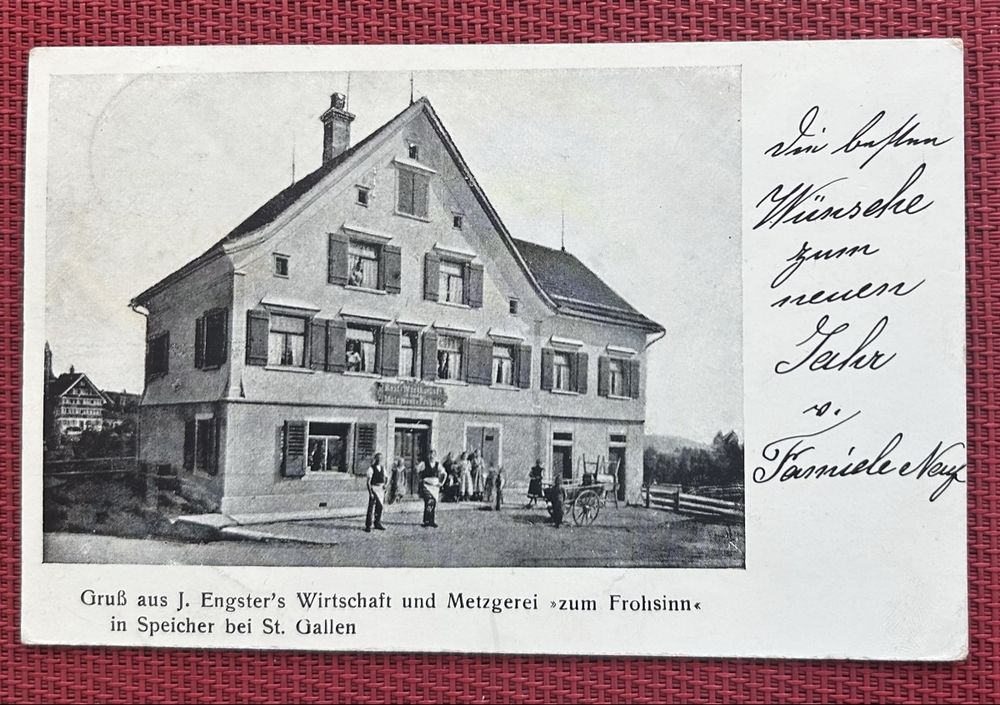 Die besten
Wünsche
zum
neuen
Jahr
v.
Familie
Gruß aus J. Engster's Wirtschaft und Metzgerei »zum Frohsinn«
in Speicher bei St. Gallen